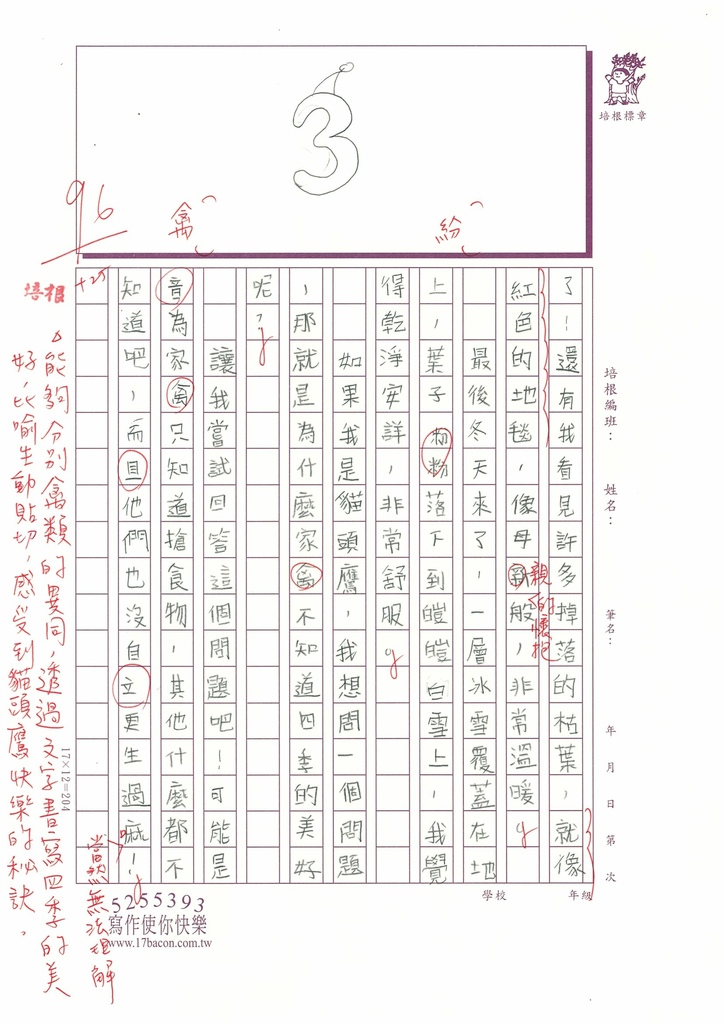 3
96
禽
紛
培根標章
培根編班：
姓名：
筆名：
年 月 日 第 次
了！還有我看見許多掉落的枯葉，就像
紅色的地毯，像母新般，非常溫暖。
親的懷抱
最後冬天來了，一層冰雪覆蓋在地
上，葉子粉粉落下到皚皚白雪上，我覺
得乾淨安詳，非常舒服。
如果我是貓頭鷹，我想問一個問題
，那就是為什麼家禽不知道四季的美好
呢？
讓我嘗試回答這個問題吧！可能是
音為家禽只知道搶食物，其他什麼都不
知道吧，而且他們也沒自立更生過嘛！
當然無法理解
+25
培根
能夠分別禽類的異同，透過文字書寫四季的美
好，比喻生動貼切，感受到貓頭鷹快樂的秘訣。
17×12=204
學校 年級
5255393
寫作使你快樂
www.17bacon.com.tw